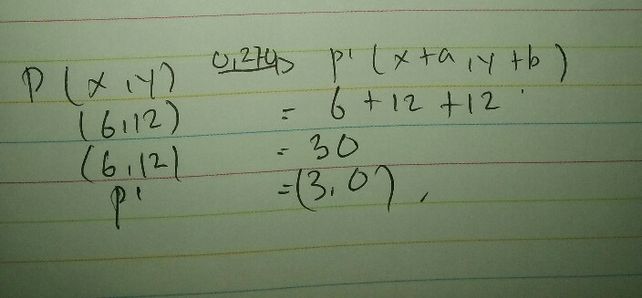 P (x,y) 0,270> p' (x+a,y+b)
(6,12) = 6 + 12 + 12
(6,12) = 30
p' = (3,0)